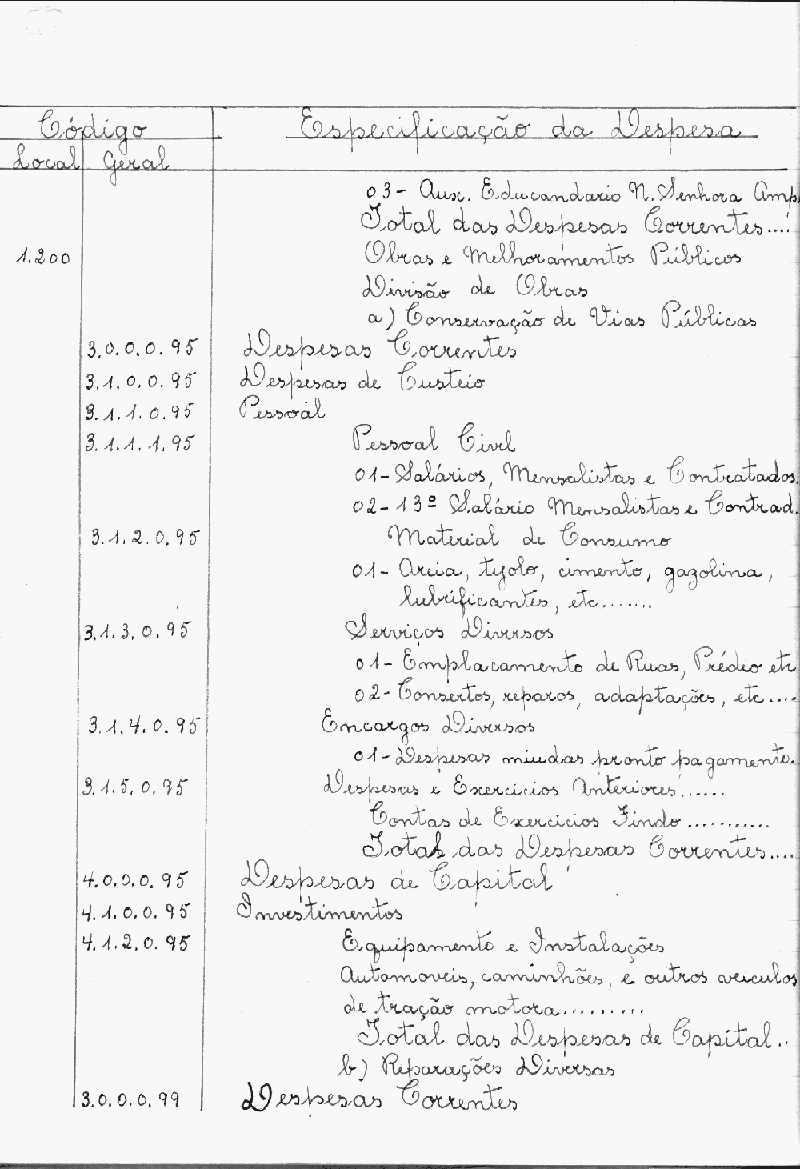 Código Especificação da Despesa
Local Geral
03- Aux. Educandario N. Senhora Amp
Total das Despesas Correntes....
1.200 Obras e Melhoramentos Públicos
Divisão de Obras
a) Conservação de Vias Públicas
3.0.0.0.95 Despesas Correntes
3.1.0.0.95 Despesas de Custeio
3.1.1.0.95 Pessoal
3.1.1.1.95 Pessoal Civil
01- Salários, Mensalistas e Contratados.
02- 13º Salário Mensalistas e Contrad.
3.1.2.0.95 Material de Consumo
01- Areia, tyolo, cimento, gazolina,
lubrificantes, etc.......
3.1.3.0.95 Serviços Diversos
01- Emplacamento de Ruas, Prédeo etc
02- Consertos, reparos, adaptações, etc....
3.1.4.0.95 Encargos Diversos
01- Despesas miudas pronto pagamento.
3.1.5.0.95 Despesas e Exercicios Anteriores......
Contas de Exercicios Findo...........
Total das Despesas Correntes....
4.0.0.0.95 Despesas de Capital
4.1.0.0.95 Investimentos
4.1.2.0.95 Equipamento e Instalações
Automoveis, caminhões, e outros veiculos
de tração motora.........
Total das Despesas de Capital..
b) Reparações Diversas
3.0.0.0.99 Despesas Correntes